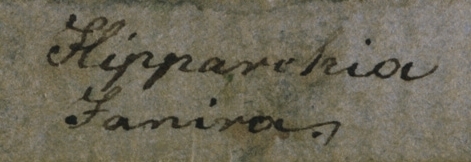 Hipparchia
Janira.